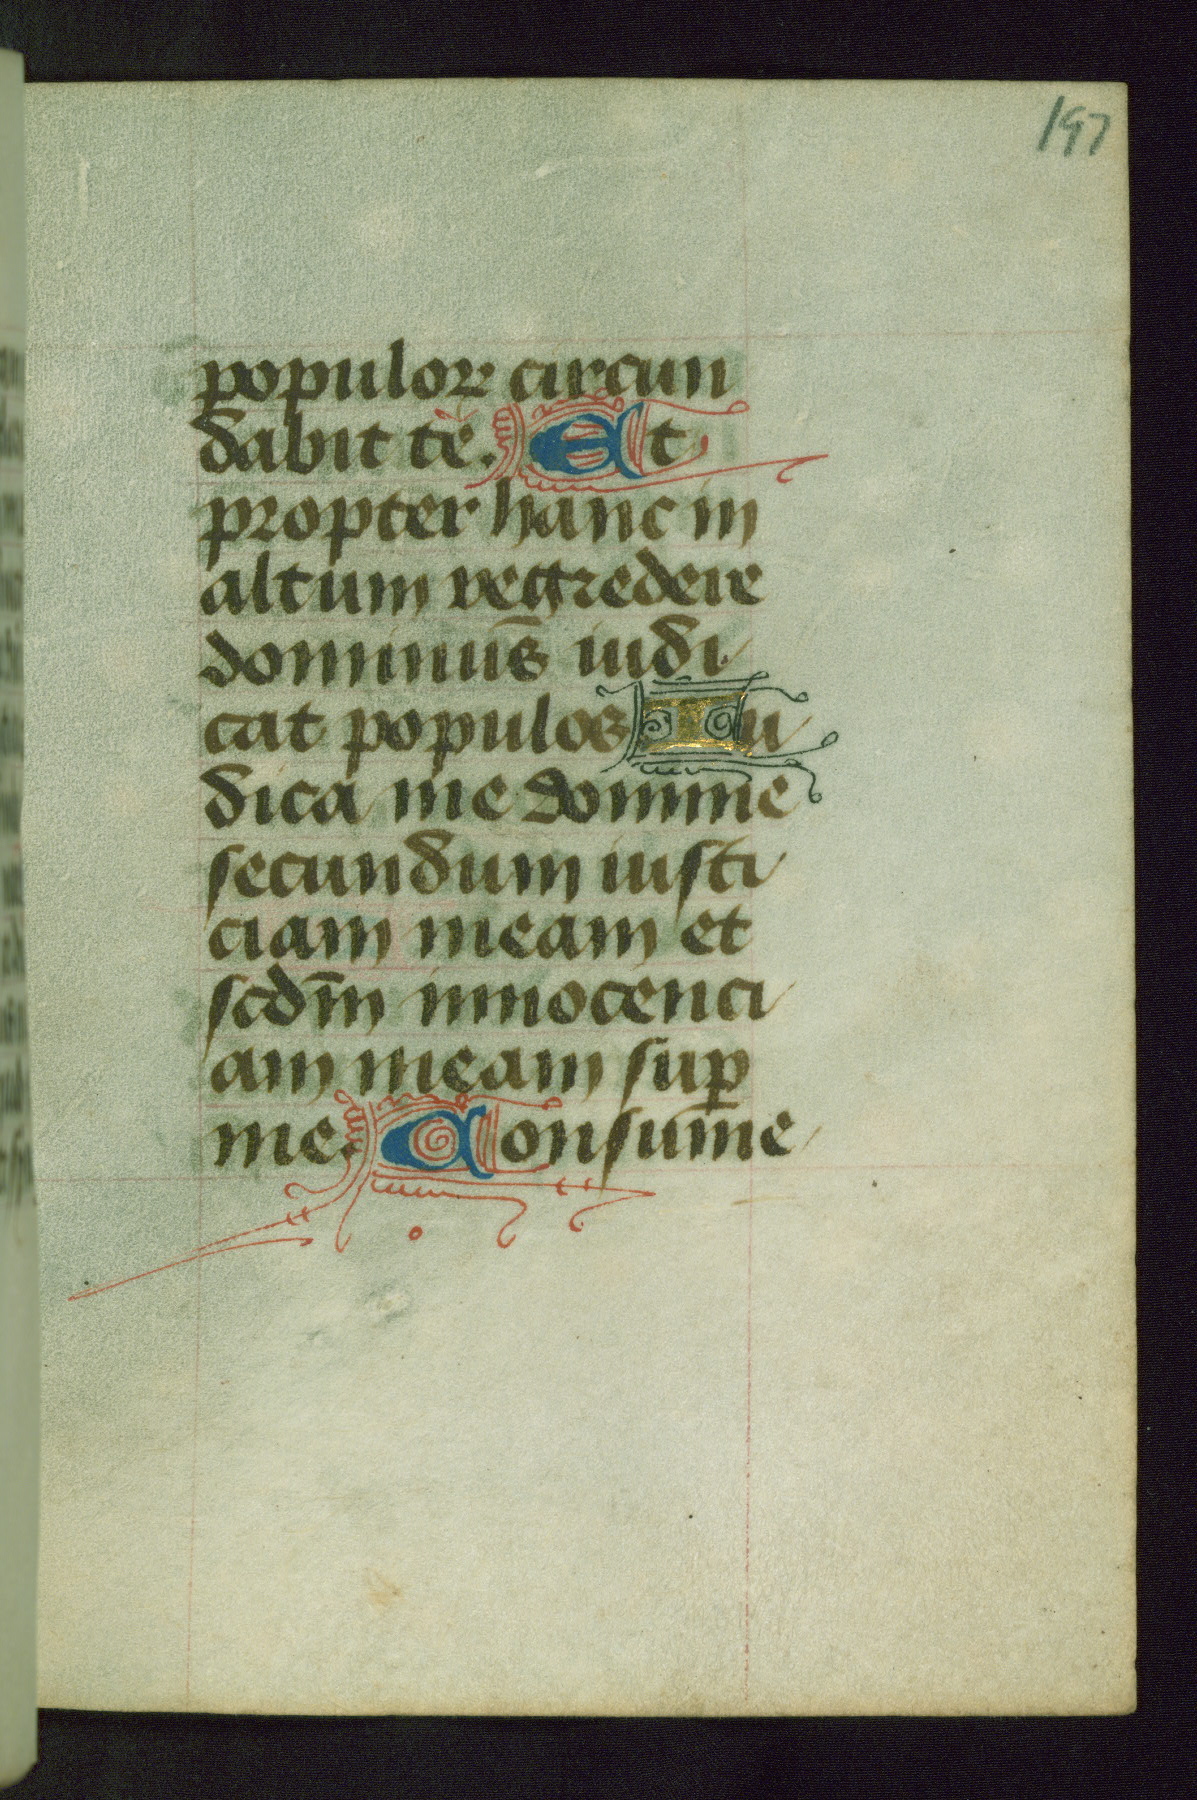 197
populoꝝ circun
dabit te. Et
propter hanc in
altum regredere
dominus iudi
cat populos Iu
dica me domine
secundum iusti
ciam meam et
scdm̄ innocenci
am meam suꝑ
me. Consum̄e